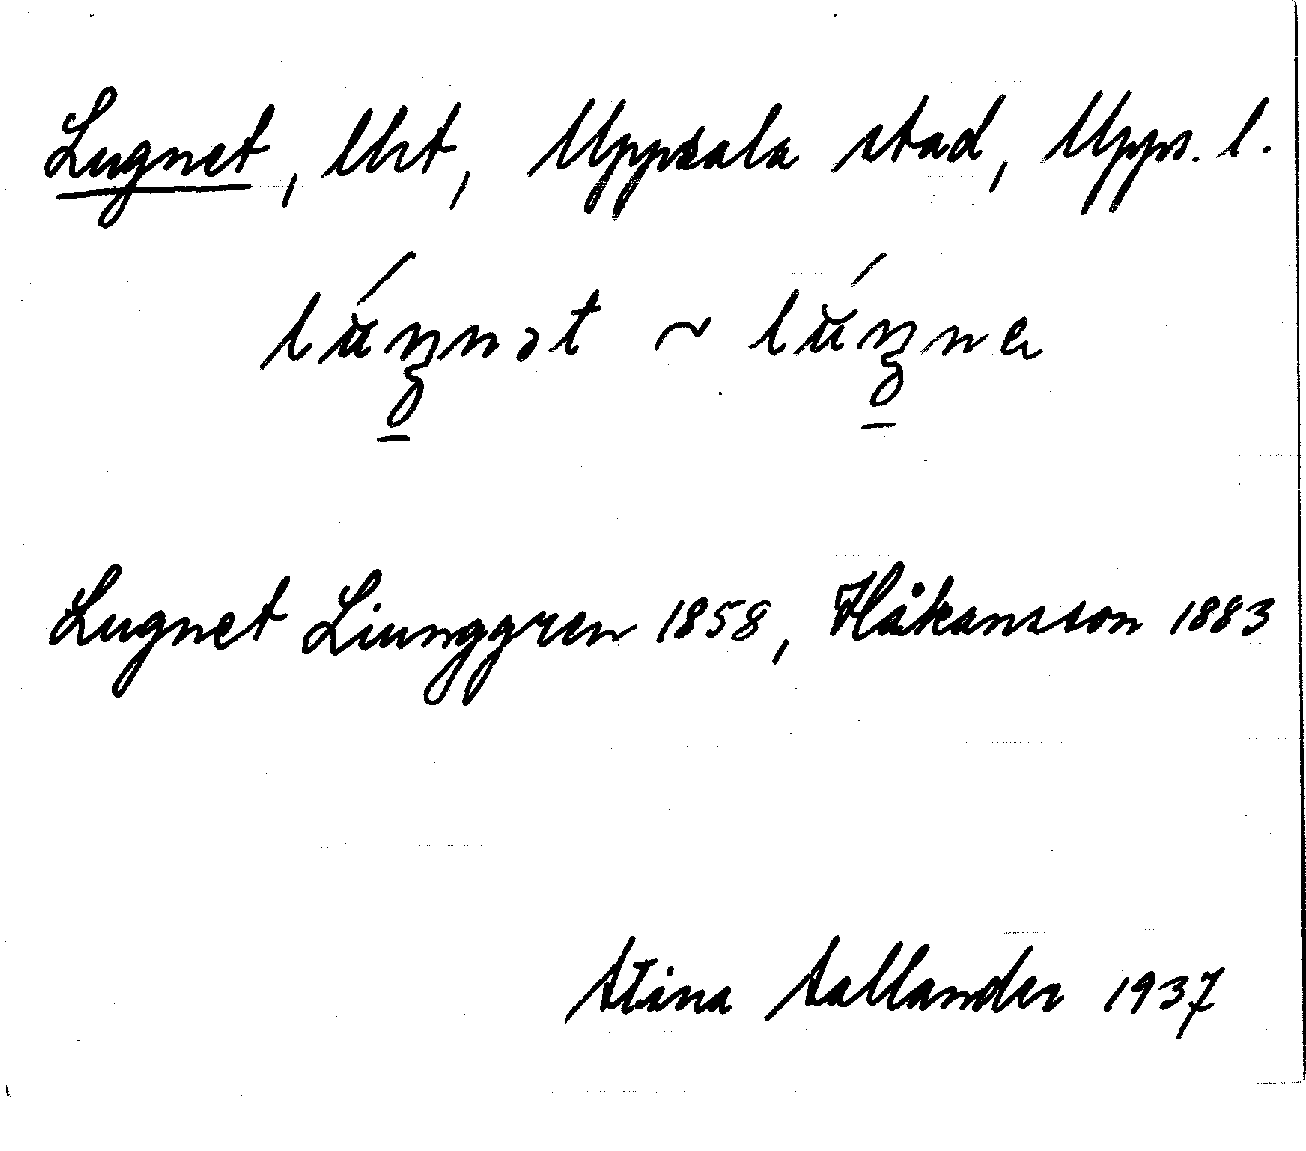 Lugnet, lht, Uppsala stad, Upps. l.
~
Lugnet Liunggren 1858, Håkansson 1883
Stina Sallander 1937